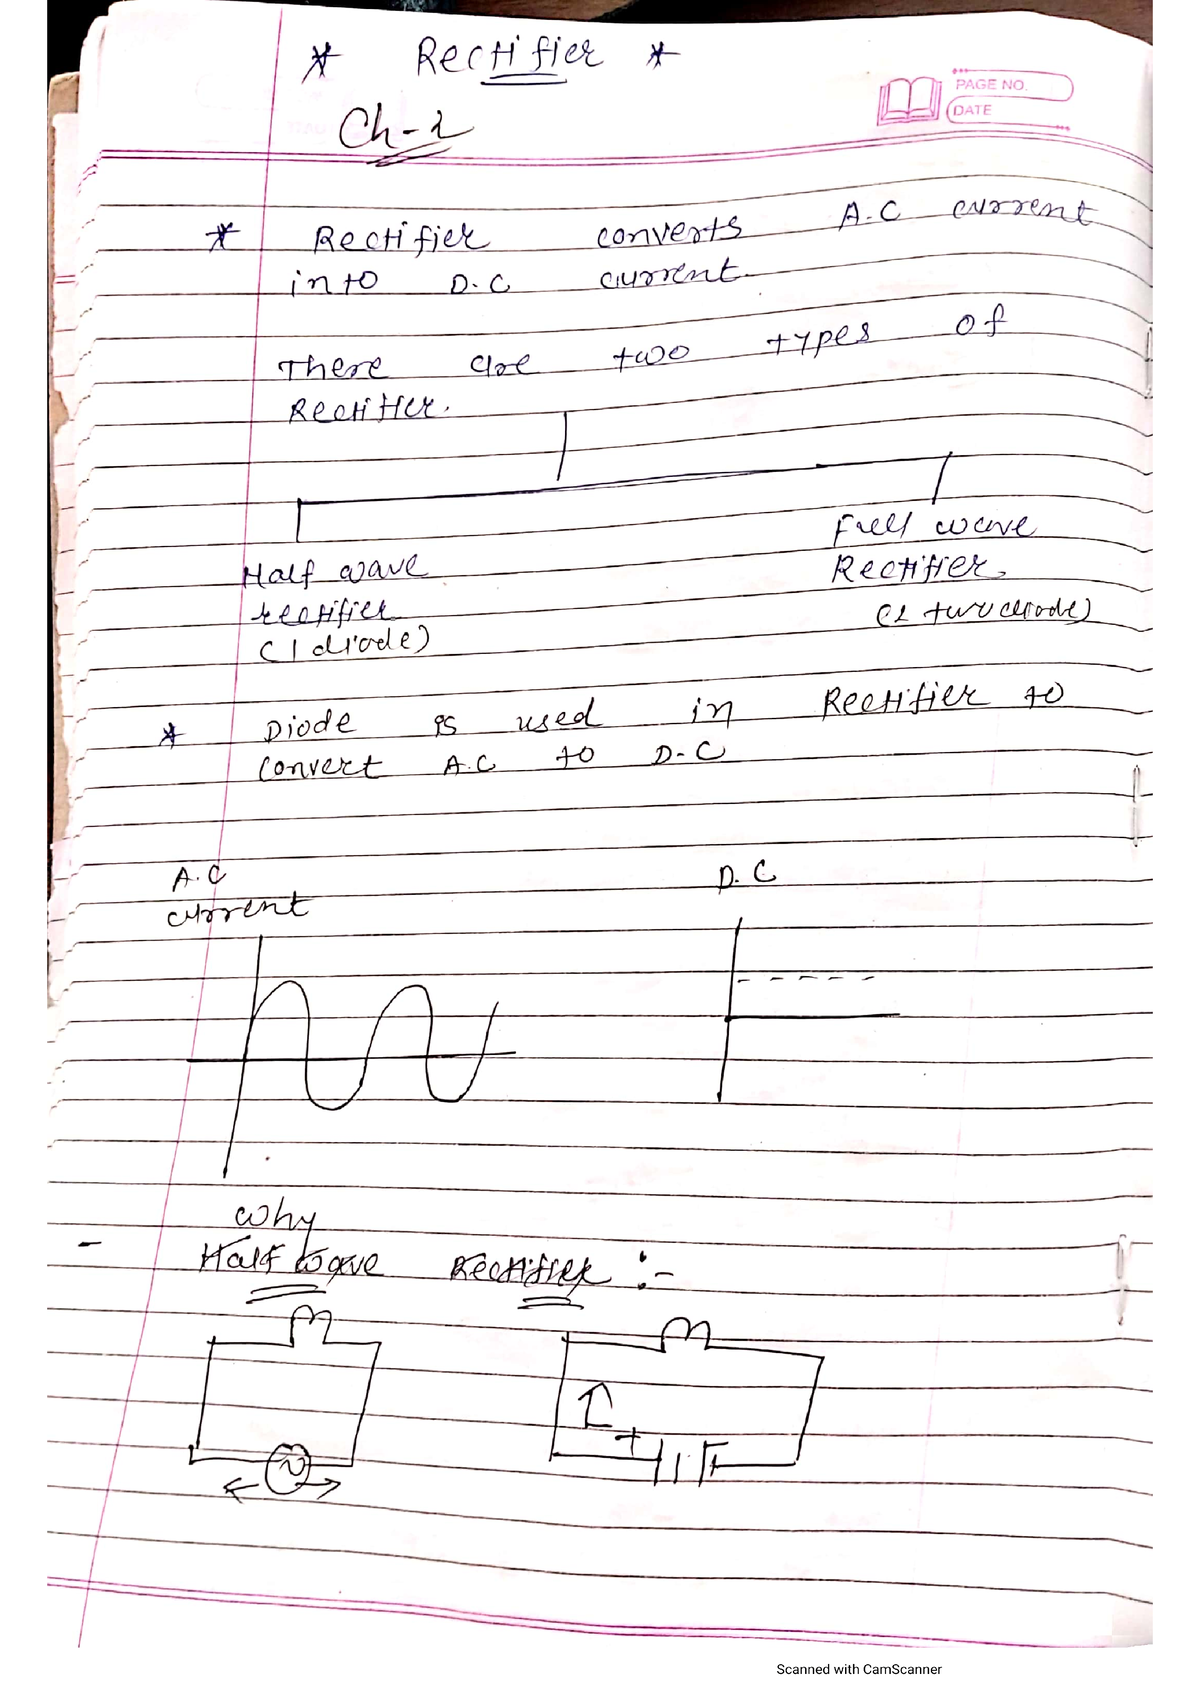 * Rectifier *
Ch-2
PAGE NO.
DATE
* Rectifier converts A.C current
into D.C current.
There are two types of
Rectifier.
Half wave
rectifier
(1 diode)
Full wave
Rectifier
(2 two diode)
* Diode is used in Rectifier to
convert A.C to D-C
A.C
current
D.C
why
- Half wave Rectifier :-
+
Scanned with CamScanner